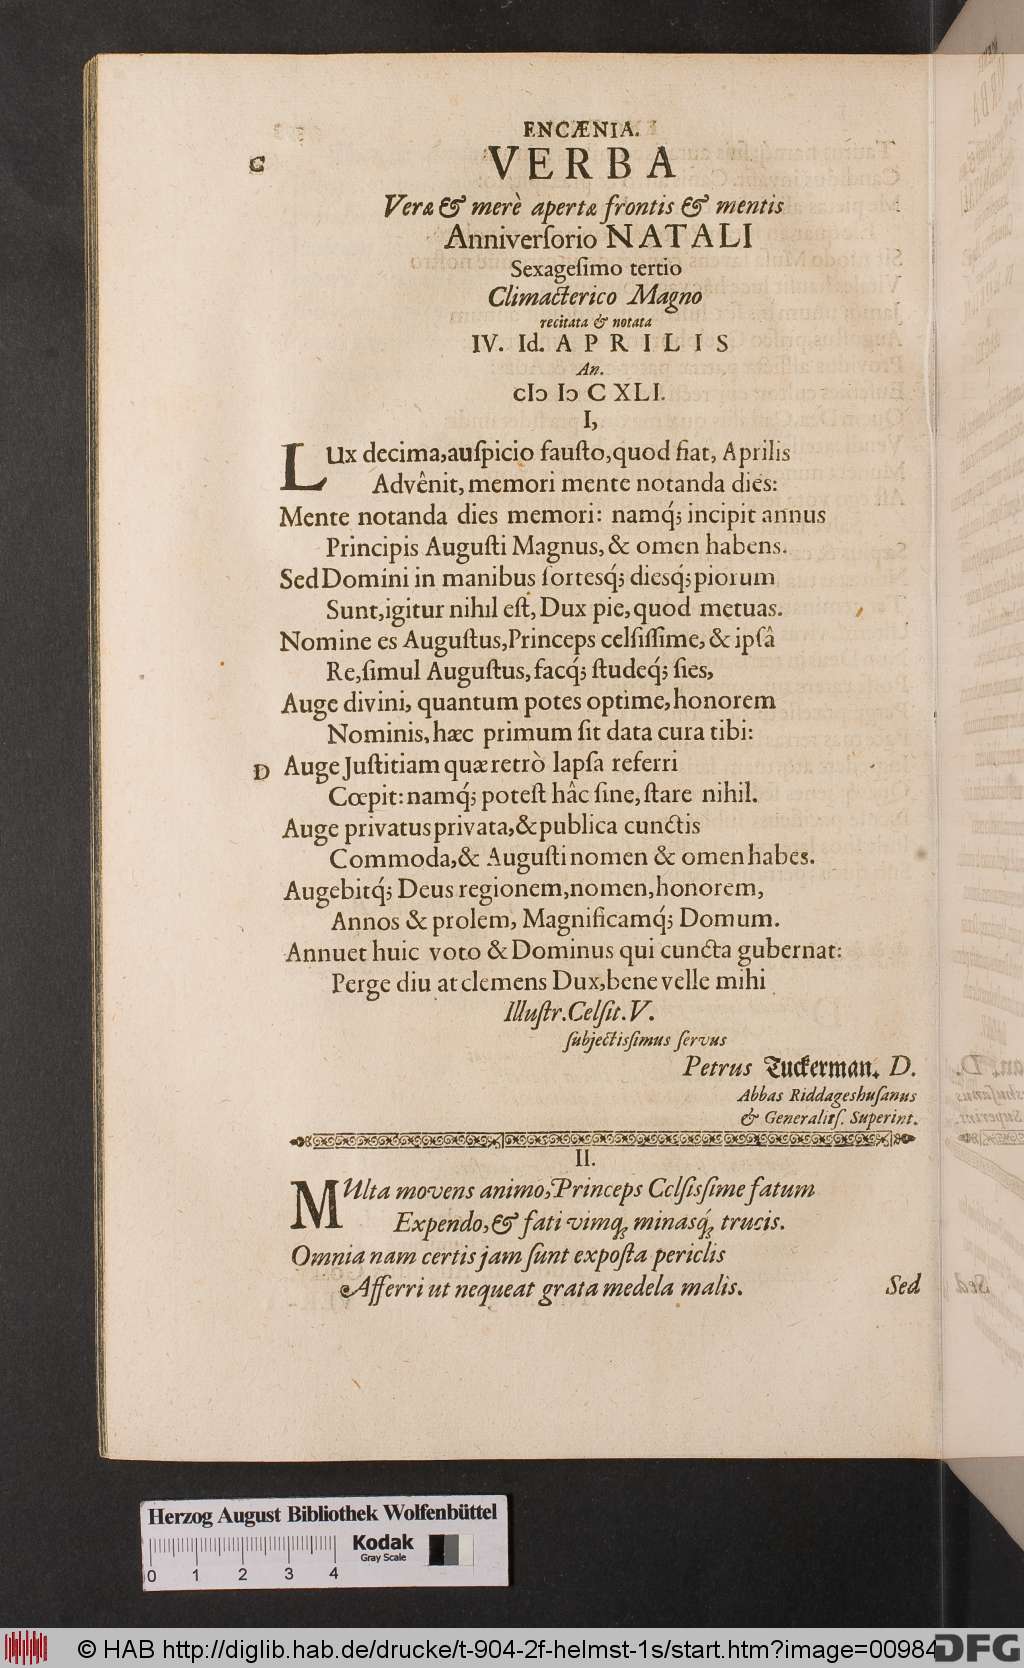 ENCÆNIA.
C
VERBA
Veræ & merè apertæ frontis & mentis
Anniverſorio NATALI
Sexageſimo tertio
Climacterico Magno
recitata & notata
IV. Id. APRILIS
An.
cIↄ Iↄ C XLI.
I,
LUx decima,auſpicio fauſto,quod fiat, Aprilis
Advênit, memori mente notanda dies:
Mente notanda dies memori: namq́; incipit annus
Principis Auguſti Magnus, & omen habens.
Sed Domini in manibus ſortesq́; diesq́; piorum
Sunt,igitur nihil eſt, Dux pie, quod metuas.
Nomine es Auguſtus,Princeps celſiſſime, & ipſâ
Re,ſimul Auguſtus, facq́; ſtudeq́; ſies,
Auge divini, quantum potes optime, honorem
Nominis, hæc primum ſit data cura tibi:
D
Auge Juſtitiam quæ retrò lapſa referri
Cœpit: namq́; poteſt hâc ſine, ſtare nihil.
Auge privatus privata, & publica cunctis
Commoda, & Auguſti nomen & omen habes.
Augebitq́; Deus regionem,nomen,honorem,
Annos & prolem, Magnificamq́; Domum.
Annuet huic voto & Dominus qui cuncta gubernat:
Perge diu at clemens Dux,bene velle mihi
Illuſtr. Celſit. V.
ſubjectiſsimus ſervus
Petrus Tuckerman. D.
Abbas Riddageshuſanus
& Generaliſſ. Superint.
II.
MUlta movens animo, Princeps Celſiſsime fatum
Expendo, & fati vimq; minasq́; trucis.
Omnia nam certis jam ſunt expoſta periclis
Afferri ut nequeat grata medela malis.
Sed
Herzog August Bibliothek Wolfenbüttel
0 1 2 3 4
Kodak
Gray Scale
© HAB http://diglib.hab.de/drucke/t-904-2f-helmst-1s/start.htm?image=00984
DFG